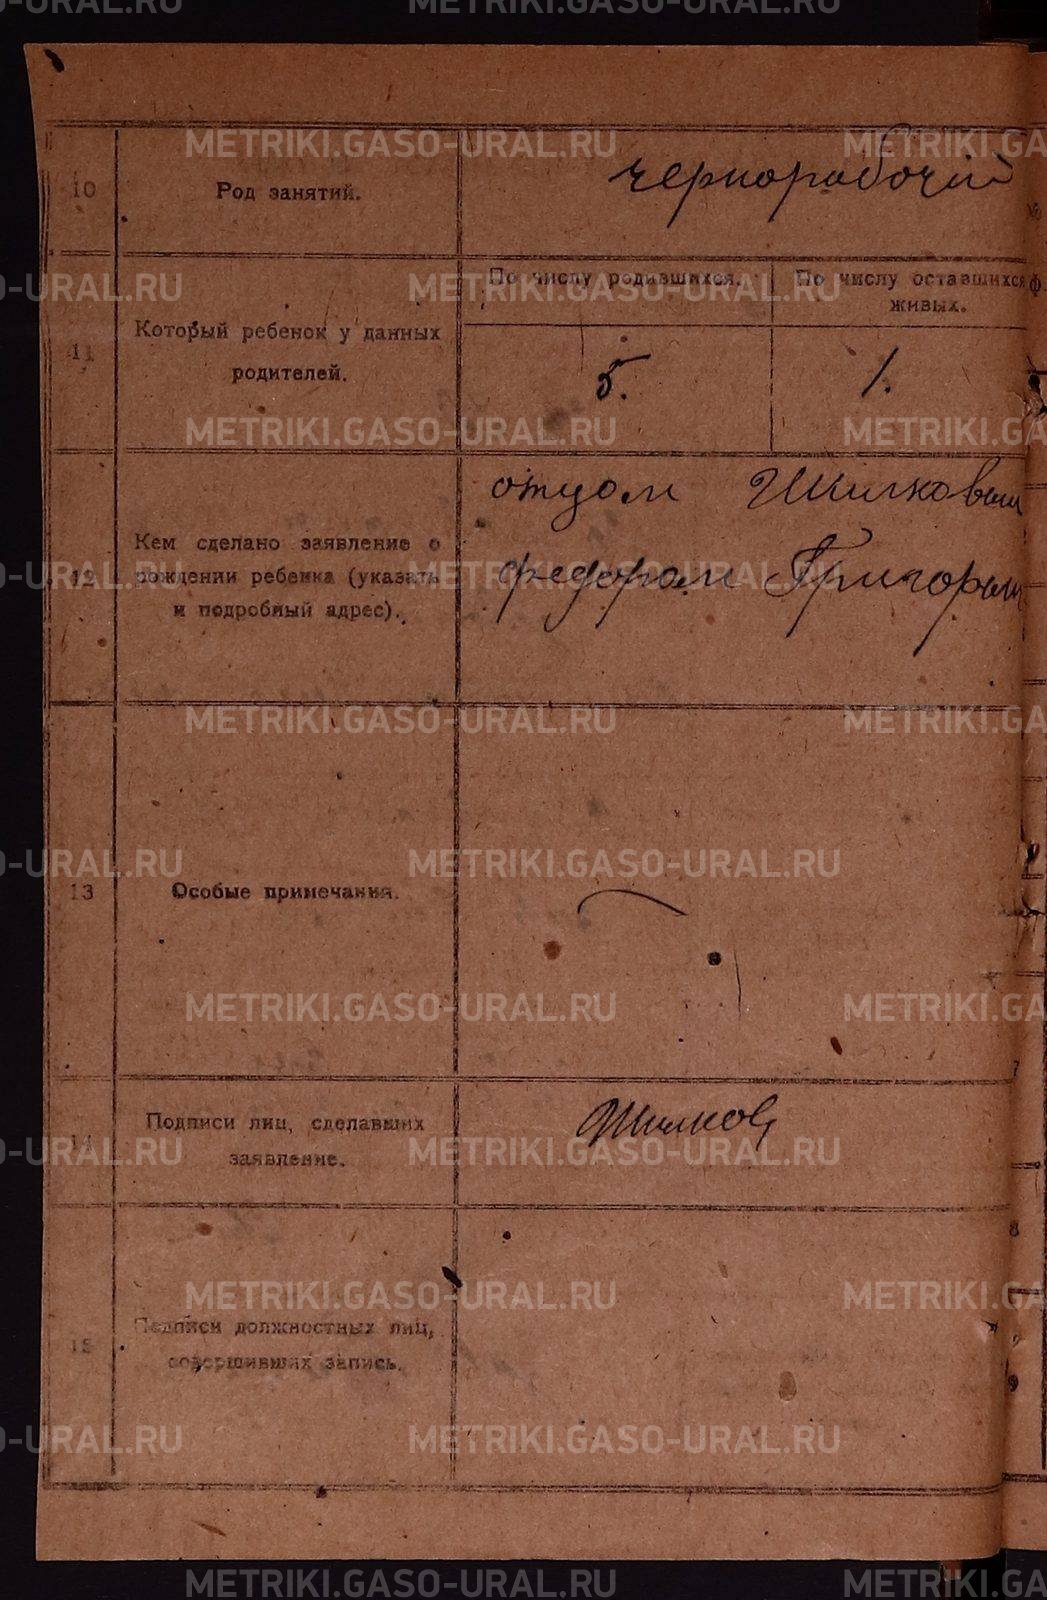 METRIKI.GASO-URAL.RU
10
Род занятий.
чернорабочій
11
Который ребенок у данных
родителей.
По числу родившихся.
По числу оставшихся
живых.
5.
1.
12
Кем сделано заявление о
рождении ребенка (указать
и подробный адрес).
отцом Шилковым
Федором Григорьем
13
Особые примечания.
14
Подписи лиц, сделавших
заявление.
Шилков
15
Подписи должностных лиц,
совершивших запись.
8
9